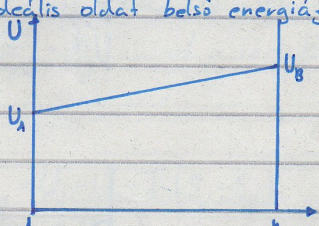 ideális oldat belső energiáj
U
U_B
U_A